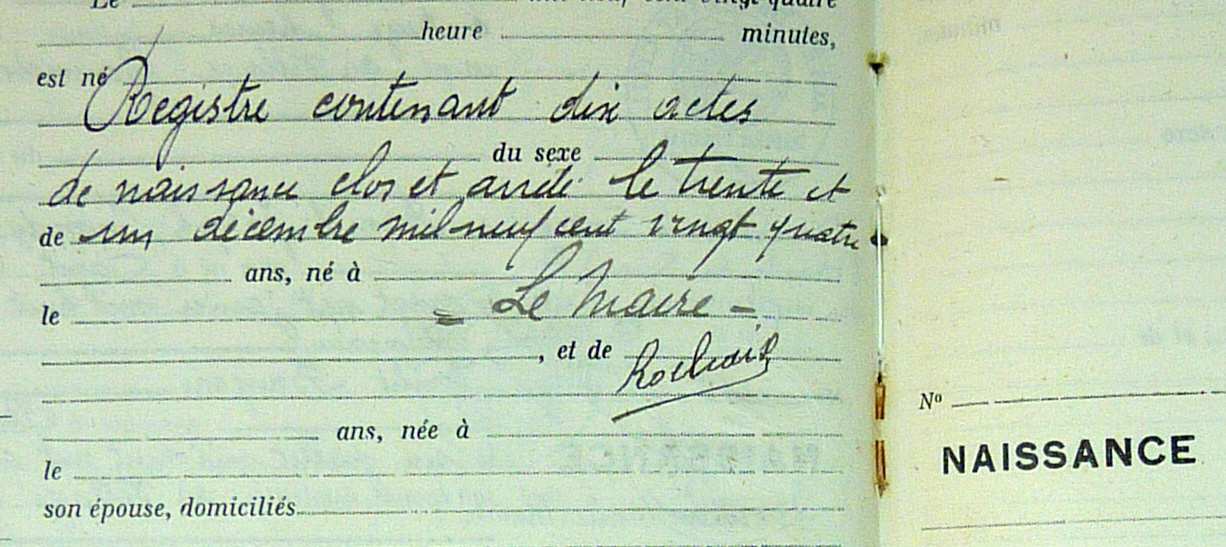 Le mil neuf cent vingt-quatre
heure minutes,
est né
Registre contenant dix actes
du sexe
de naissance clos et arrêté le trente et
de un décembre mil neuf cent vingt quatre
ans, né à
le = Le Maire =
, et de
ans, née à
le
son épouse, domiciliés
N°
NAISSANCE